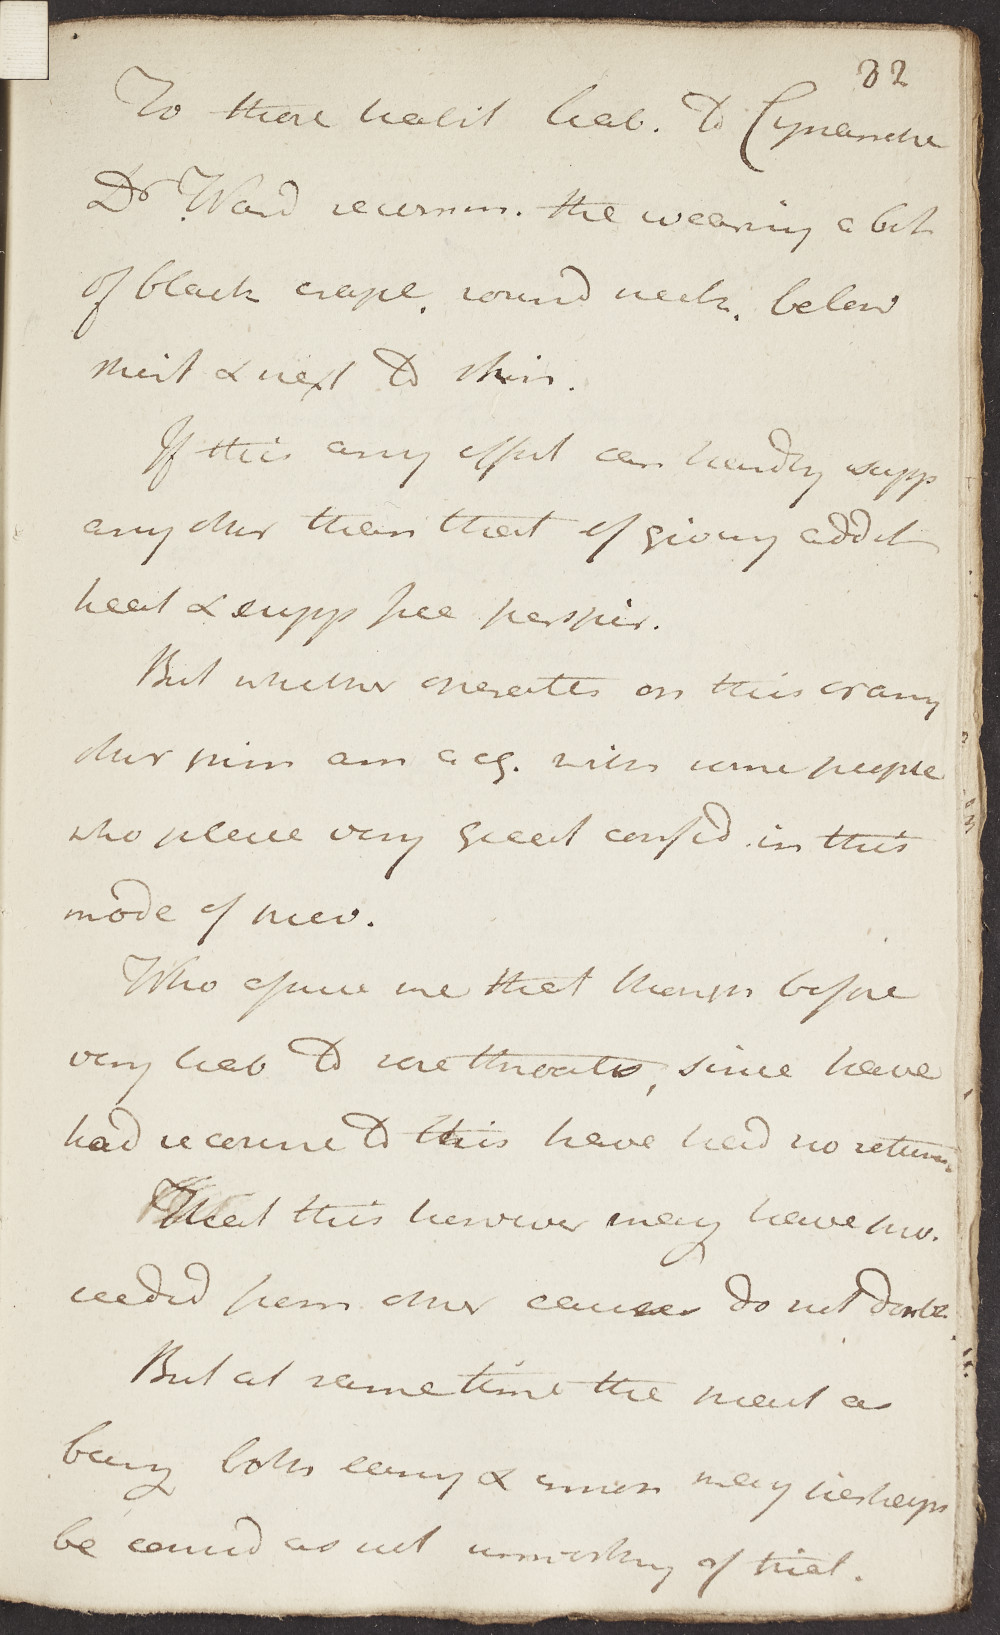 82
To those habit liab. to Cynanche
Dr Ward recomm. the wearing a bit
of black crape, round neck, below
shirt & next to skin.
If this any effect can hardly supp
any other than that of giving addit
heat & supp free perspir.
But whether operates on this or any
other prin am acq. with some people
who place very great confid. in this
mode of prev.
Who assure me that though before
very liab to sore throats, since have
had recourse to this have had no return.
That this however may have pro-
ceeded from other causes do not doubt.
But at same time the pract as
being both easy & may perhaps
be consid as not unworthy of trial.